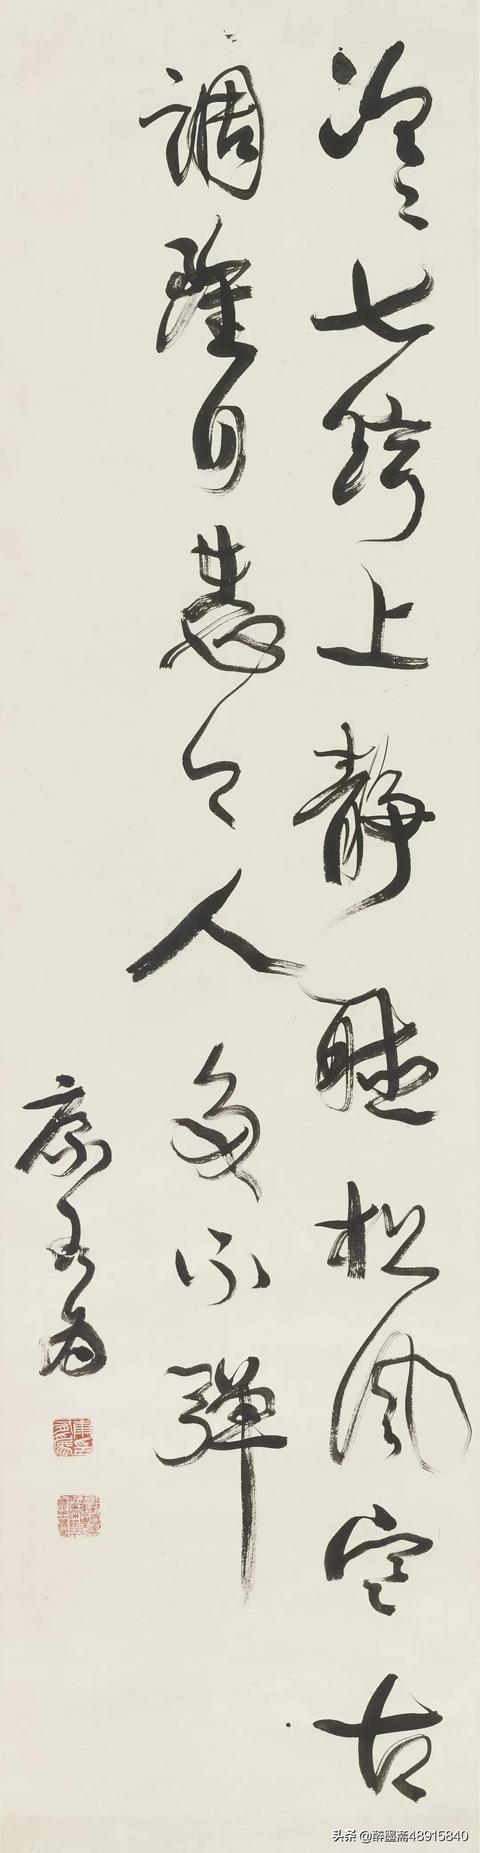 泠〻七絃上靜聽松風寒古
調雖自愛今人多不彈
康有為
康有為印
头条 @醉墨斋48915840